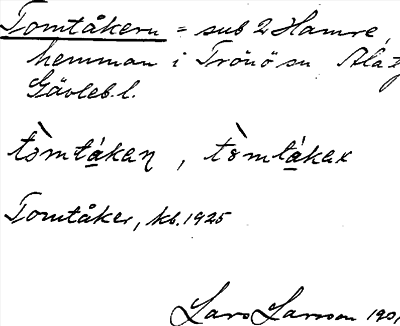 Tomtåkern = sub 2 Hamre,
hemman i Trönö sn
Gävleb. l.
tòmtákaꞃ, tòmtákar
Tomtåker, kb. 1925
Lars Larsson